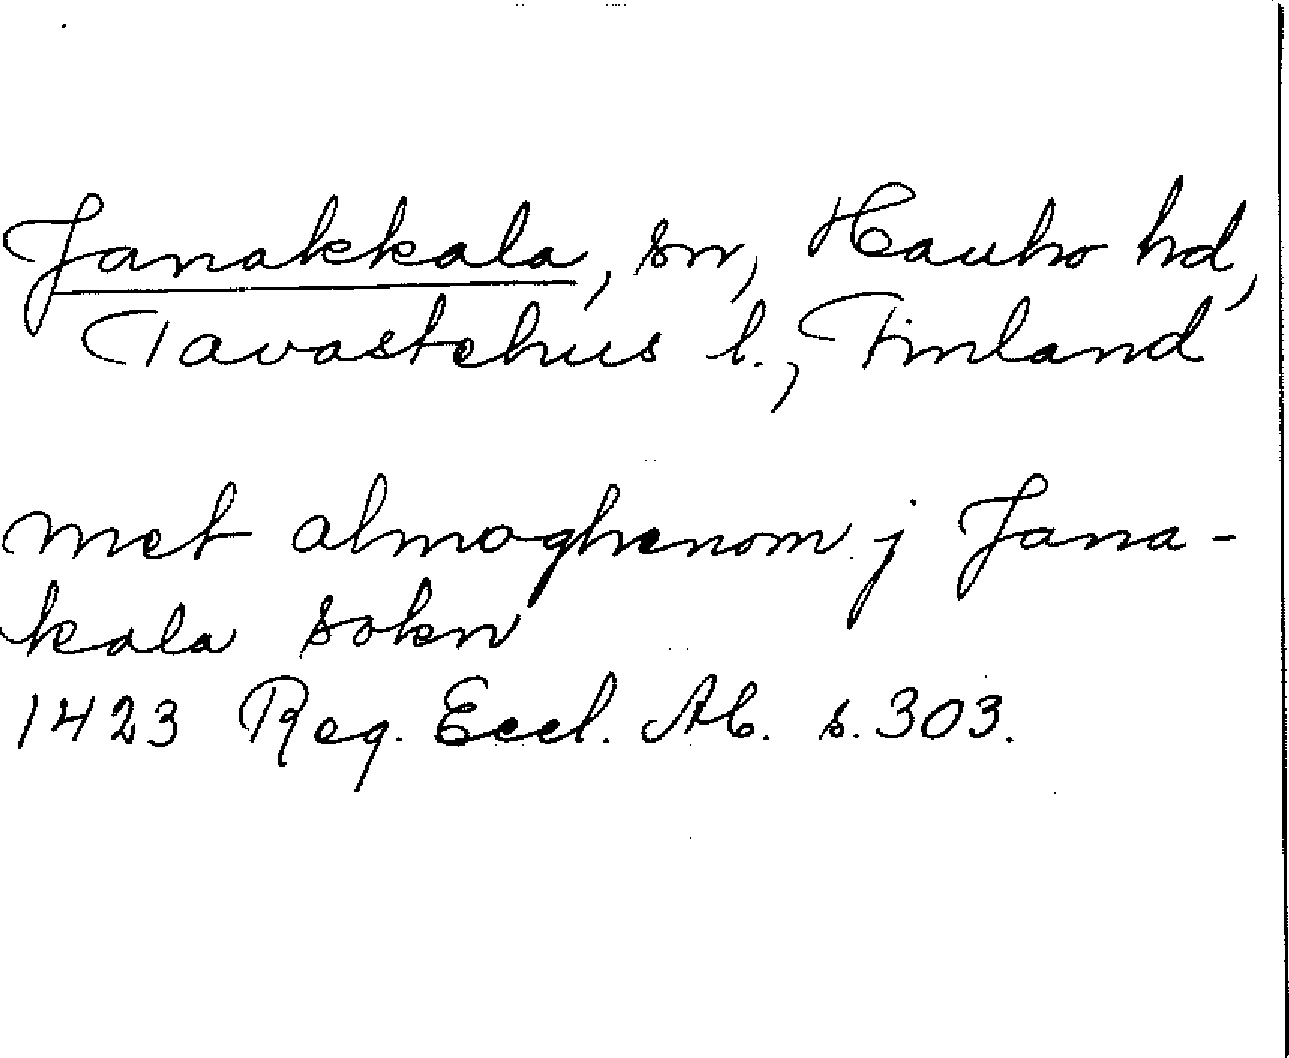 Janakkala, sn, Hauho hd,
Tavastehus l., Finland
met almoghenom j Jana-
kala sokn
1423 Reg. Eccl. Ab. s. 303.